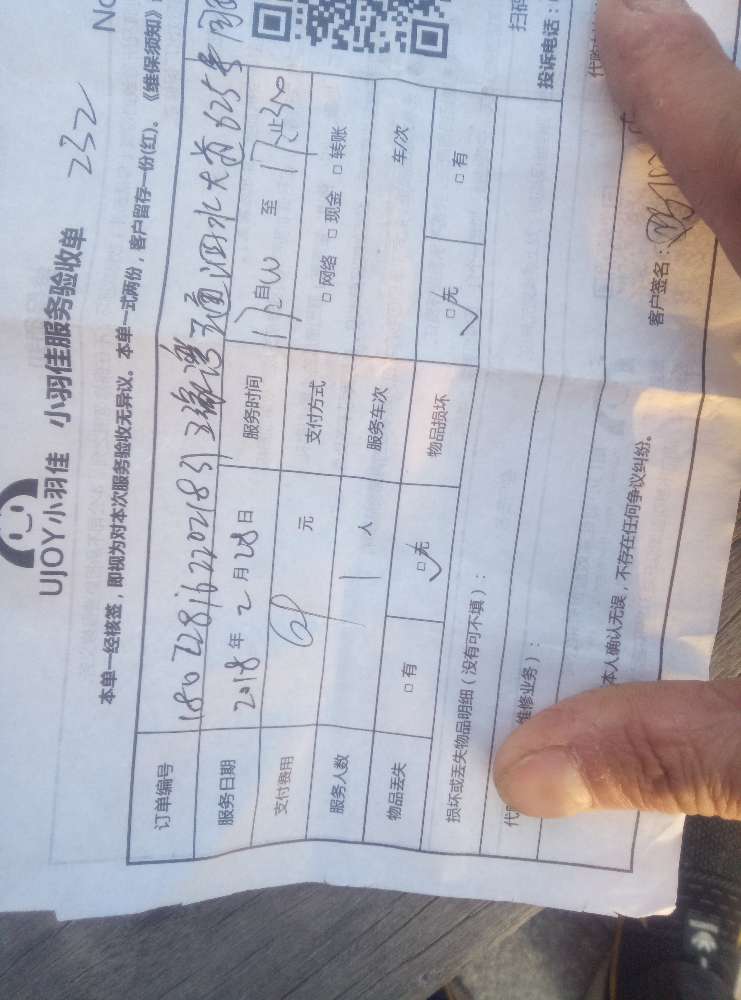 No
UJOY小羽佳 小羽佳服务验收单 232
本单一经核签，即视为对本次服务验收无异议。本单一式两份，客户留存一份(红)。《维保须知》
订单编号 180228162202183
服务日期 2018年2月28日 服务时间 17自00 至 17止30
支付费用 元 支付方式 □网络 □现金 □转账
服务人数 1人 服务车次 车/次
物品丢失 □有 □无 物品损坏 □无 □有
损坏或丢失物品明细（没有可不填）：
维修业务）：
本人确认无误，不存在任何争议纠纷。
客户签名：
扫码
投诉电话：
代收